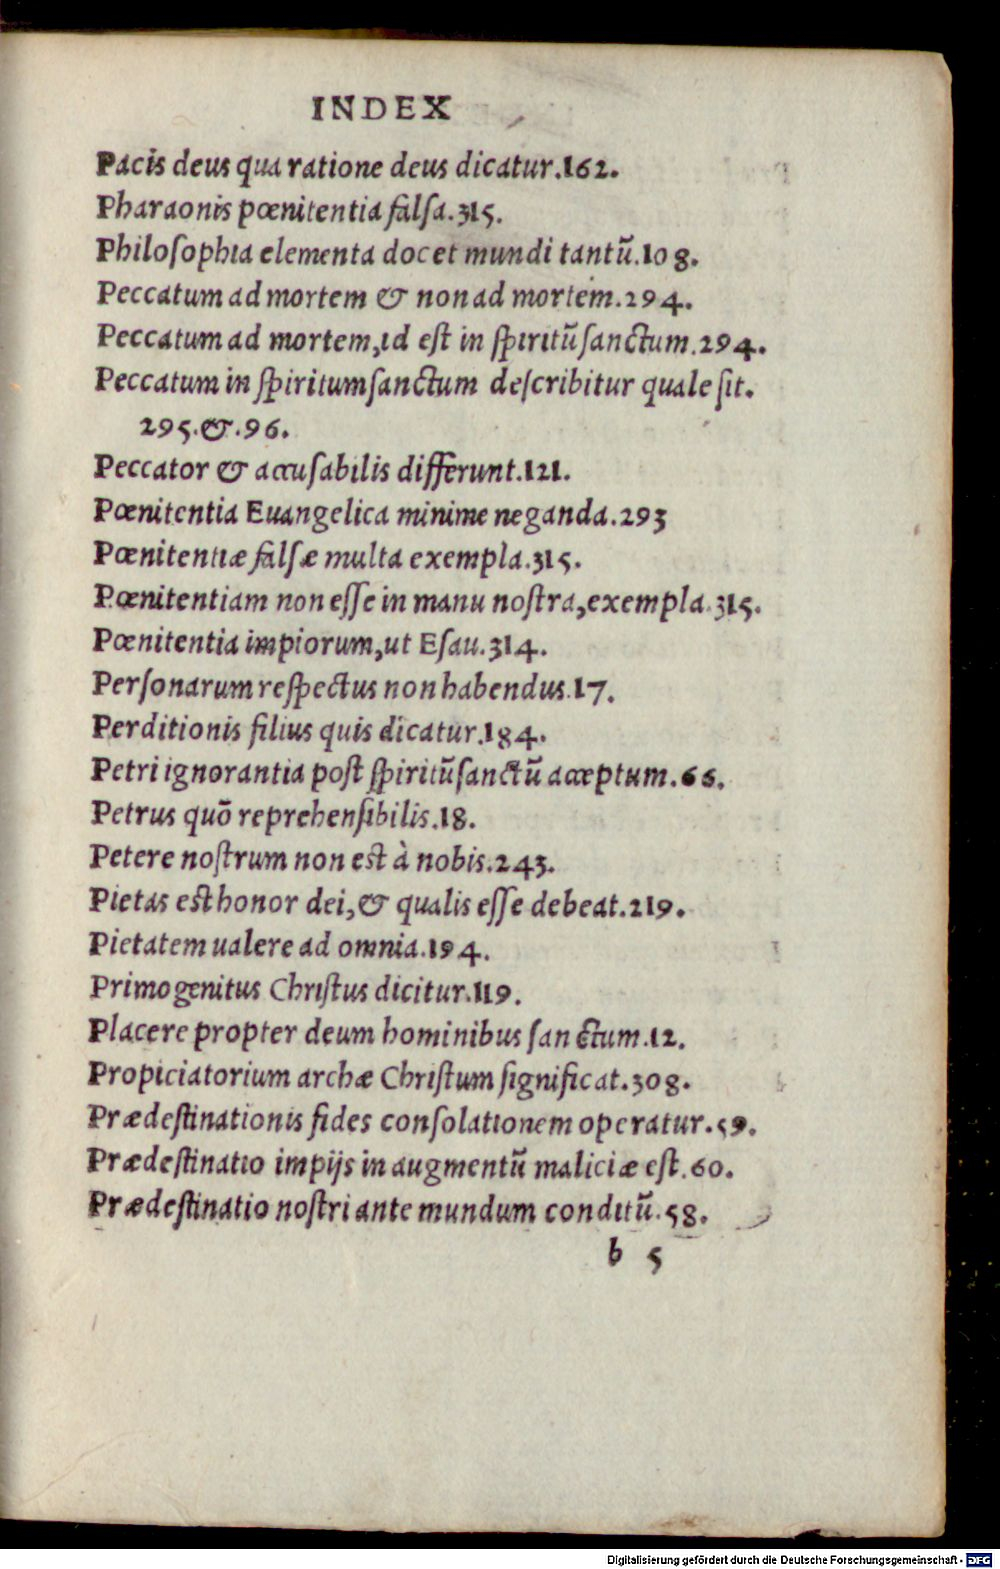 INDEX
Pacis deus qua ratione deus dicatur.162.
Pharaonis pœnitentia falſa.315.
Philoſophia elementa docet mundi tantū.108.
Peccatum ad mortem & non ad mortem.294.
Peccatum ad mortem,id eſt in ſpiritūſanctum.294.
Peccatum in ſpiritumſanctum deſcribitur quale ſit.
295.&.96.
Peccator & accuſabilis differunt.121.
Pœnitentia Euangelica minime neganda.293
Pœnitentiæ falſæ multa exempla.315.
Pœnitentiam non eſſe in manu noſtra,exempla.315.
Pœnitentia impiorum,ut Eſau.314.
Perſonarum reſpectus non habendus.17.
Perditionis filius quis dicatur.184.
Petri ignorantia poſt ſpiritūſanctū acceptum.66.
Petrus quō reprehenſibilis.18.
Petere noſtrum non est à nobis.243.
Pietas est honor dei,& qualis eſſe debeat.219.
Pietatem ualere ad omnia.194.
Primogenitus Chriſtus dicitur.119.
Placere propter deum hominibus ſanctum.12.
Propiciatorium archæ Chriſtum ſignificat.308.
Prædeſtinationis fides conſolationem operatur.59.
Prædeſtinatio impijs in augmentū maliciæ eſt.60.
Prædeſtinatio noſtri ante mundum conditū.58.
b 5
Digitalisierung gefördert durch die Deutsche Forschungsgemeinschaft - DFG